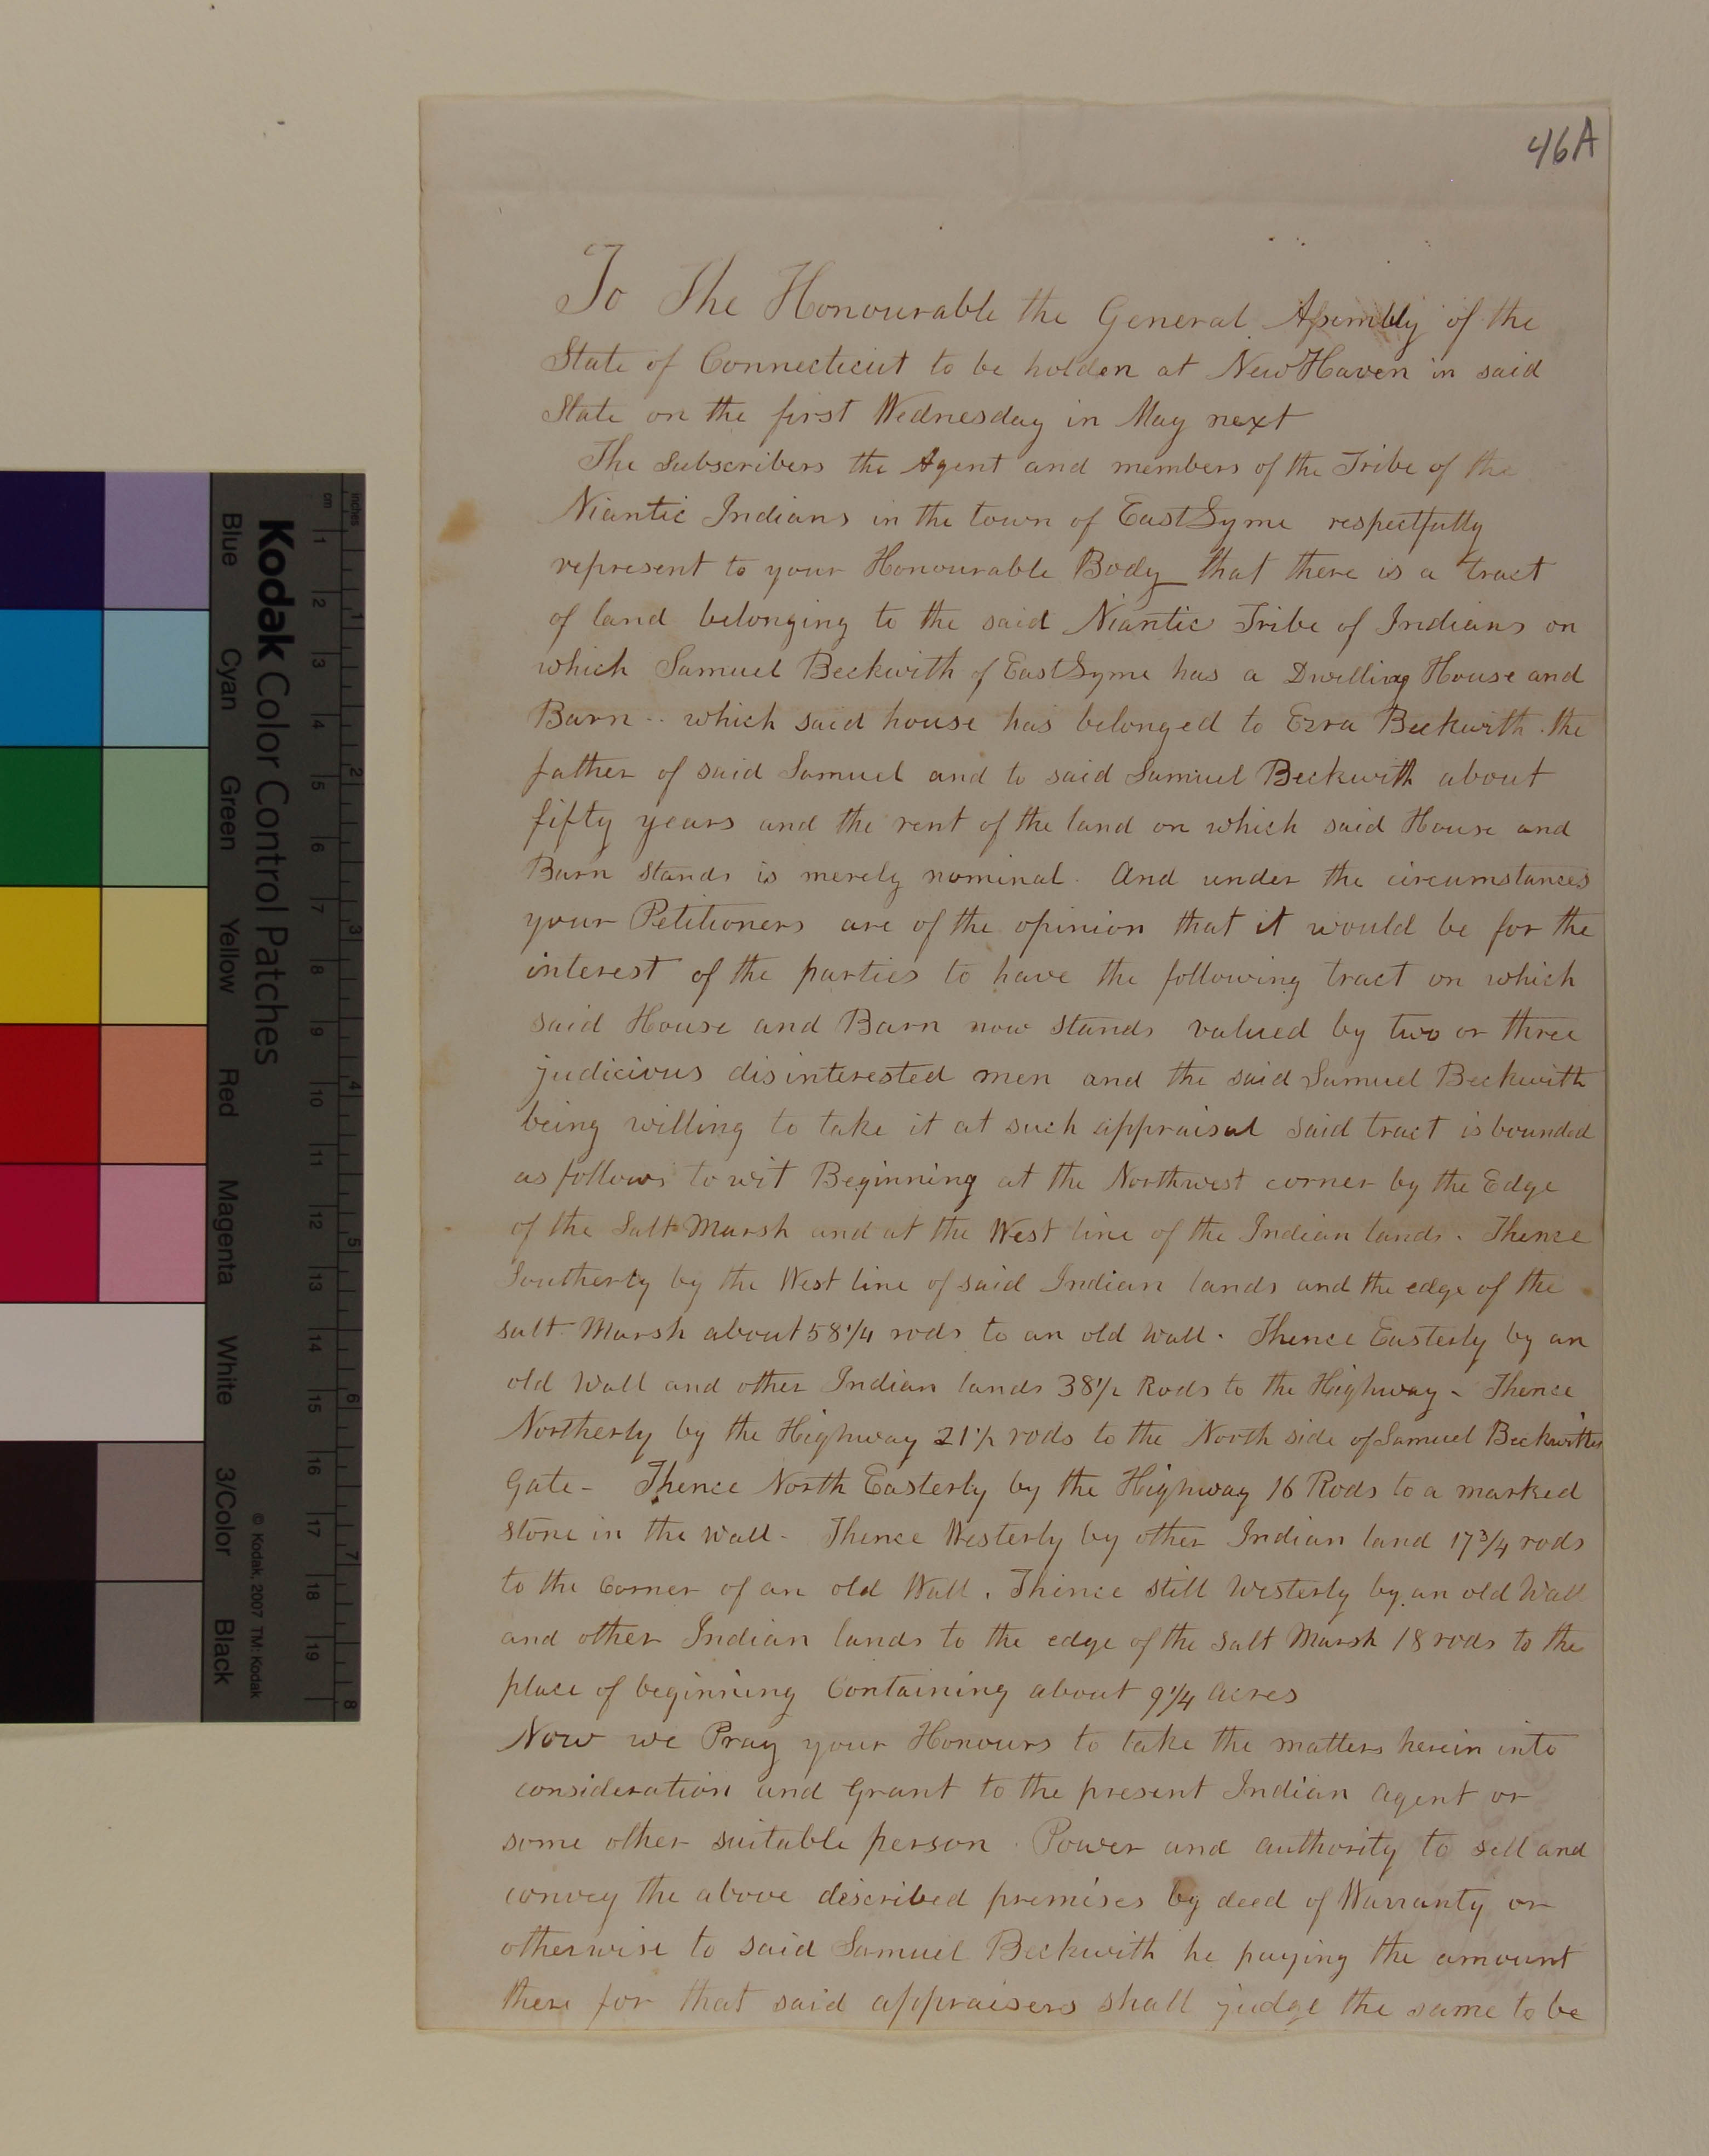 46A
To The Honourable the General Assembly of the
State of Connecticut to be holden at New Haven in said
State on the first Wednesday in May next
The Subscribers the Agent and members of the Tribe of the
Niantic Indians in the town of East Lyme respectfully
represent to your Honourable Body that there is a tract
of land belonging to the said Niantic Tribe of Indians on
which Samuel Beckwith of East Lyme has a Dwelling House and
Barn .. which said house has belonged to Ezra Beckwith the
father of said Samuel and to said Samuel Beckwith about
fifty years and the rent of the land on which said House and
Barn stands is merely nominal. And under the circumstances
your Petitioners are of the opinion that it would be for the
interest of the parties to have the following tract on which
said House and Barn now stands valued by two or three
judicious disinterested men and the said Samuel Beckwith
being willing to take it at such appraisal said tract is bounded
as follows to wit Beginning at the Northwest corner by the Edge
of the Salt Marsh and at the West line of the Indian lands. Thence
Southerly by the West line of said Indian lands and the edge of the
salt Marsh about 58 1/4 rods to an old Wall. Thence Easterly by an
old Wall and other Indian lands 38 1/2 Rods to the Highway - Thence
Northerly by the Highway 21 1/2 rods to the North side of Samuel Beckwiths
Gate - Thence North Easterly by the Highway 16 Rods to a marked
stone in the Wall - Thence Westerly by other Indian land 17 3/4 rods
to the Corner of an old Wall. Thence still Westerly by an old Wall
and other Indian lands to the edge of the Salt Marsh 18 rods to the
place of beginning Containing about 9 1/4 Acres
Now we Pray your Honours to take the matters herein into
consideration and Grant to the present Indian Agent or
some other suitable person Power and authority to sell and
convey the above described premises by deed of Warranty or
otherwise to said Samuel Beckwith he paying the amount
there for that said appraisers shall judge the same to be
Kodak Color Control Patches
© Kodak, 2007 TM: Kodak
Blue Cyan Green Yellow Red Magenta White 3/Color Black
inches 1 2 3 4 5 6 7 8
cm 1 2 3 4 5 6 7 8 9 10 11 12 13 14 15 16 17 18 19